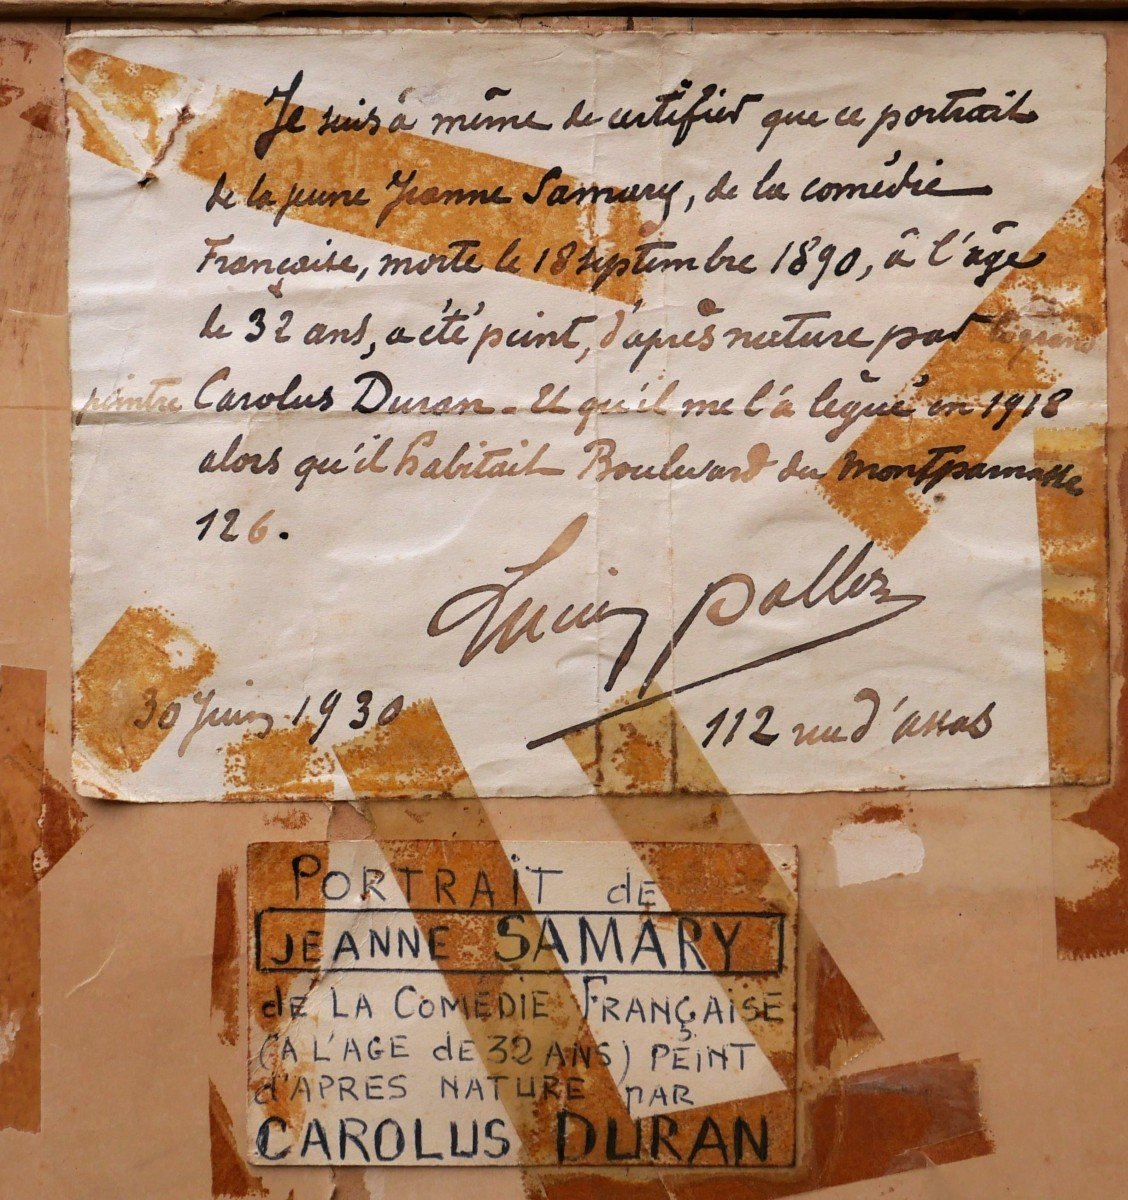 Je suis à même de certifier que ce portrait
de la jeune Jeanne Samary, de la comédie
Française, morte le 18 septembre 1890, à l'âge
de 32 ans, a été peint, d'après nature par le grand
peintre Carolus Duran - Et qu'il me l'a légué en 1918
alors qu'il habitait Boulevard du Montparnasse
126.
Lucien Pallez
30 Juin 1930
112 rue d'assas
PORTRAIT de
JEANNE SAMARY
de LA COMÉDIE FRANÇAISE
(A L'AGE de 32 ANS) PEINT
d'APRES NATURE PAR
CAROLUS DURAN